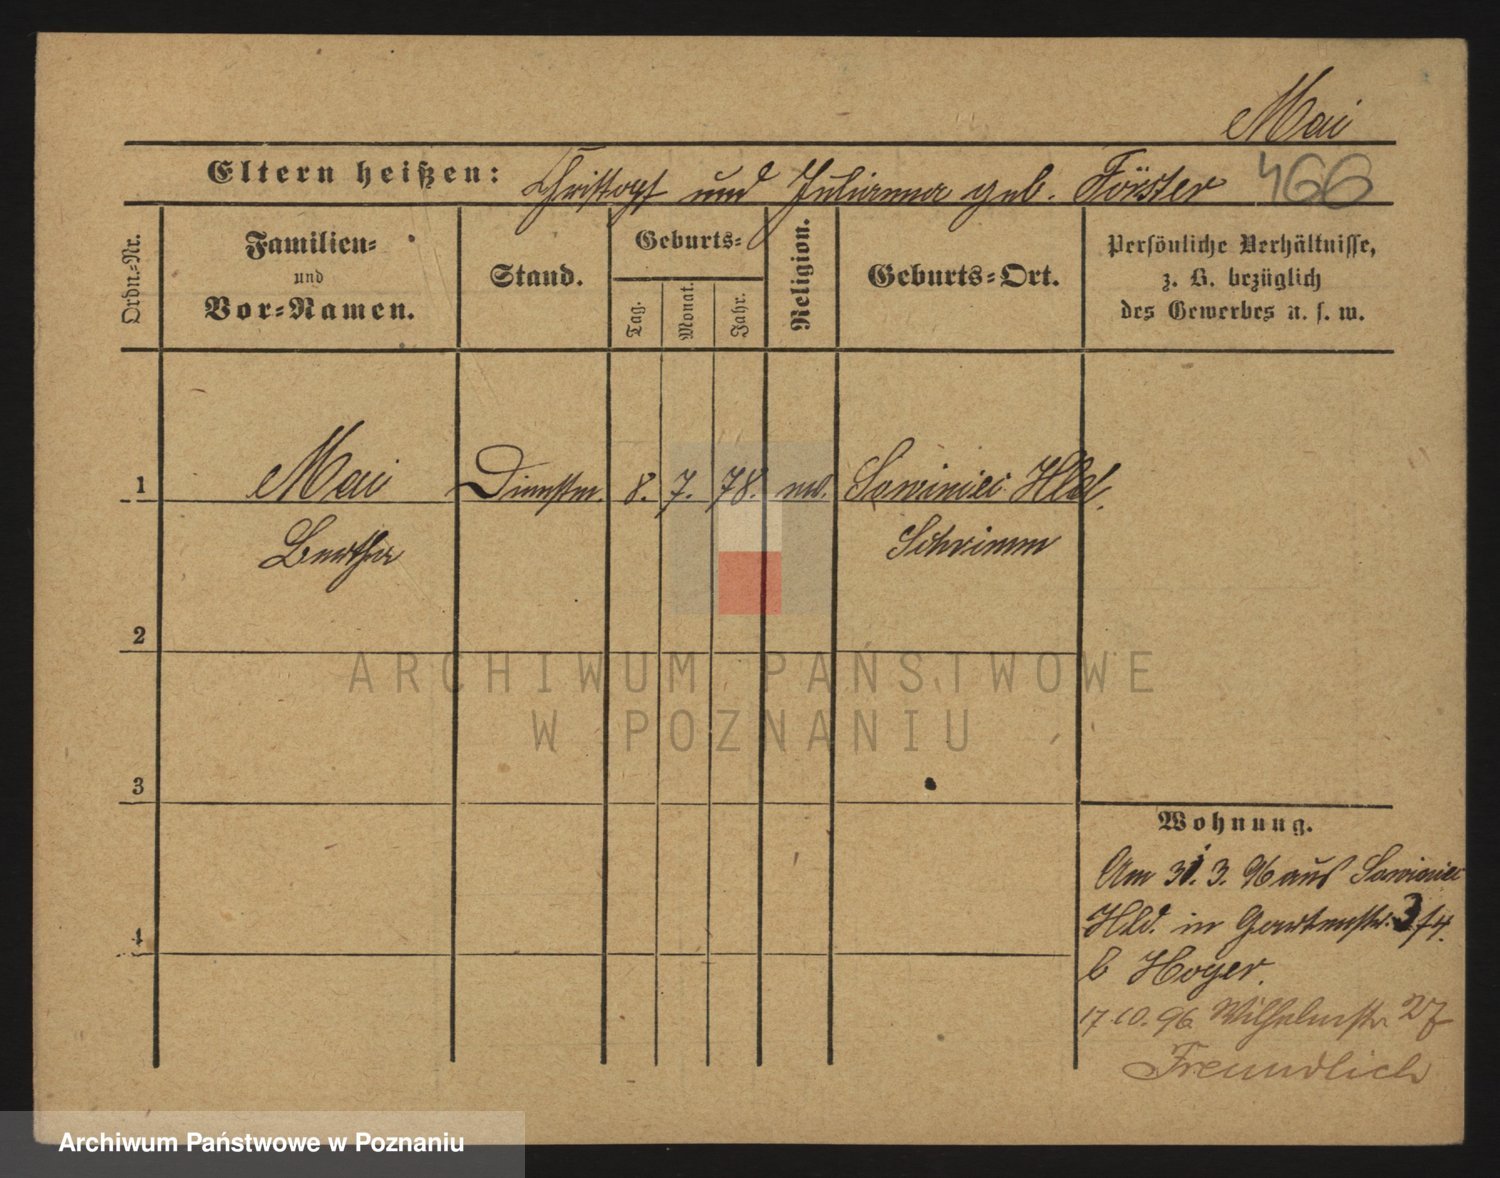 Mai
Eltern heißen: Christoph und Julianna geb. Förster 466
Ordn.-Nr.
Familien-
und
Vor-Namen.
Stand.
Geburts-
Tag.
Monat.
Jahr.
Religion.
Geburts-Ort.
Persönliche Verhältnisse,
z. B. bezüglich
des Gewerbes u. s. w.
1 Mai Dienstm. 8. 7. 78. Hld.
Bertha Schrimm
2
3
4
ARCHIWUM PAŃSTWOWE
W POZNANIU
Wohnung.
Am 31. 3. 96 aus
Hld. in Gartenstr. 3 f4.
b Hoyer.
17.10.96 Wilhelmstr 27
Freundlich
Archiwum Państwowe w Poznaniu